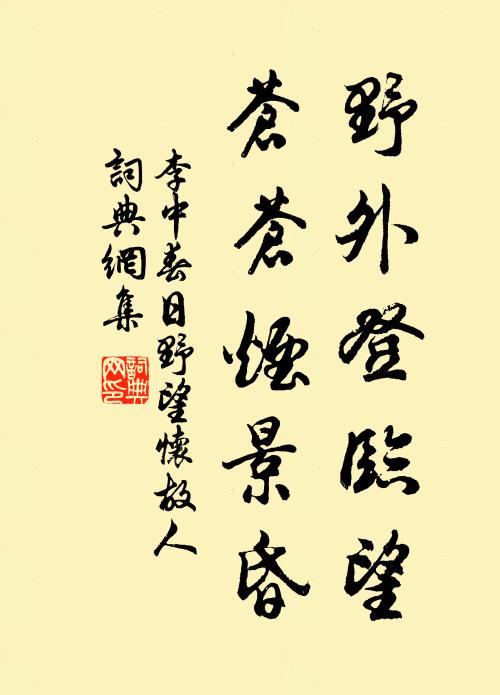 野外登臨望
蒼蒼煙景昏
李中春日野望懷故人
詞典網集
詞典
网印